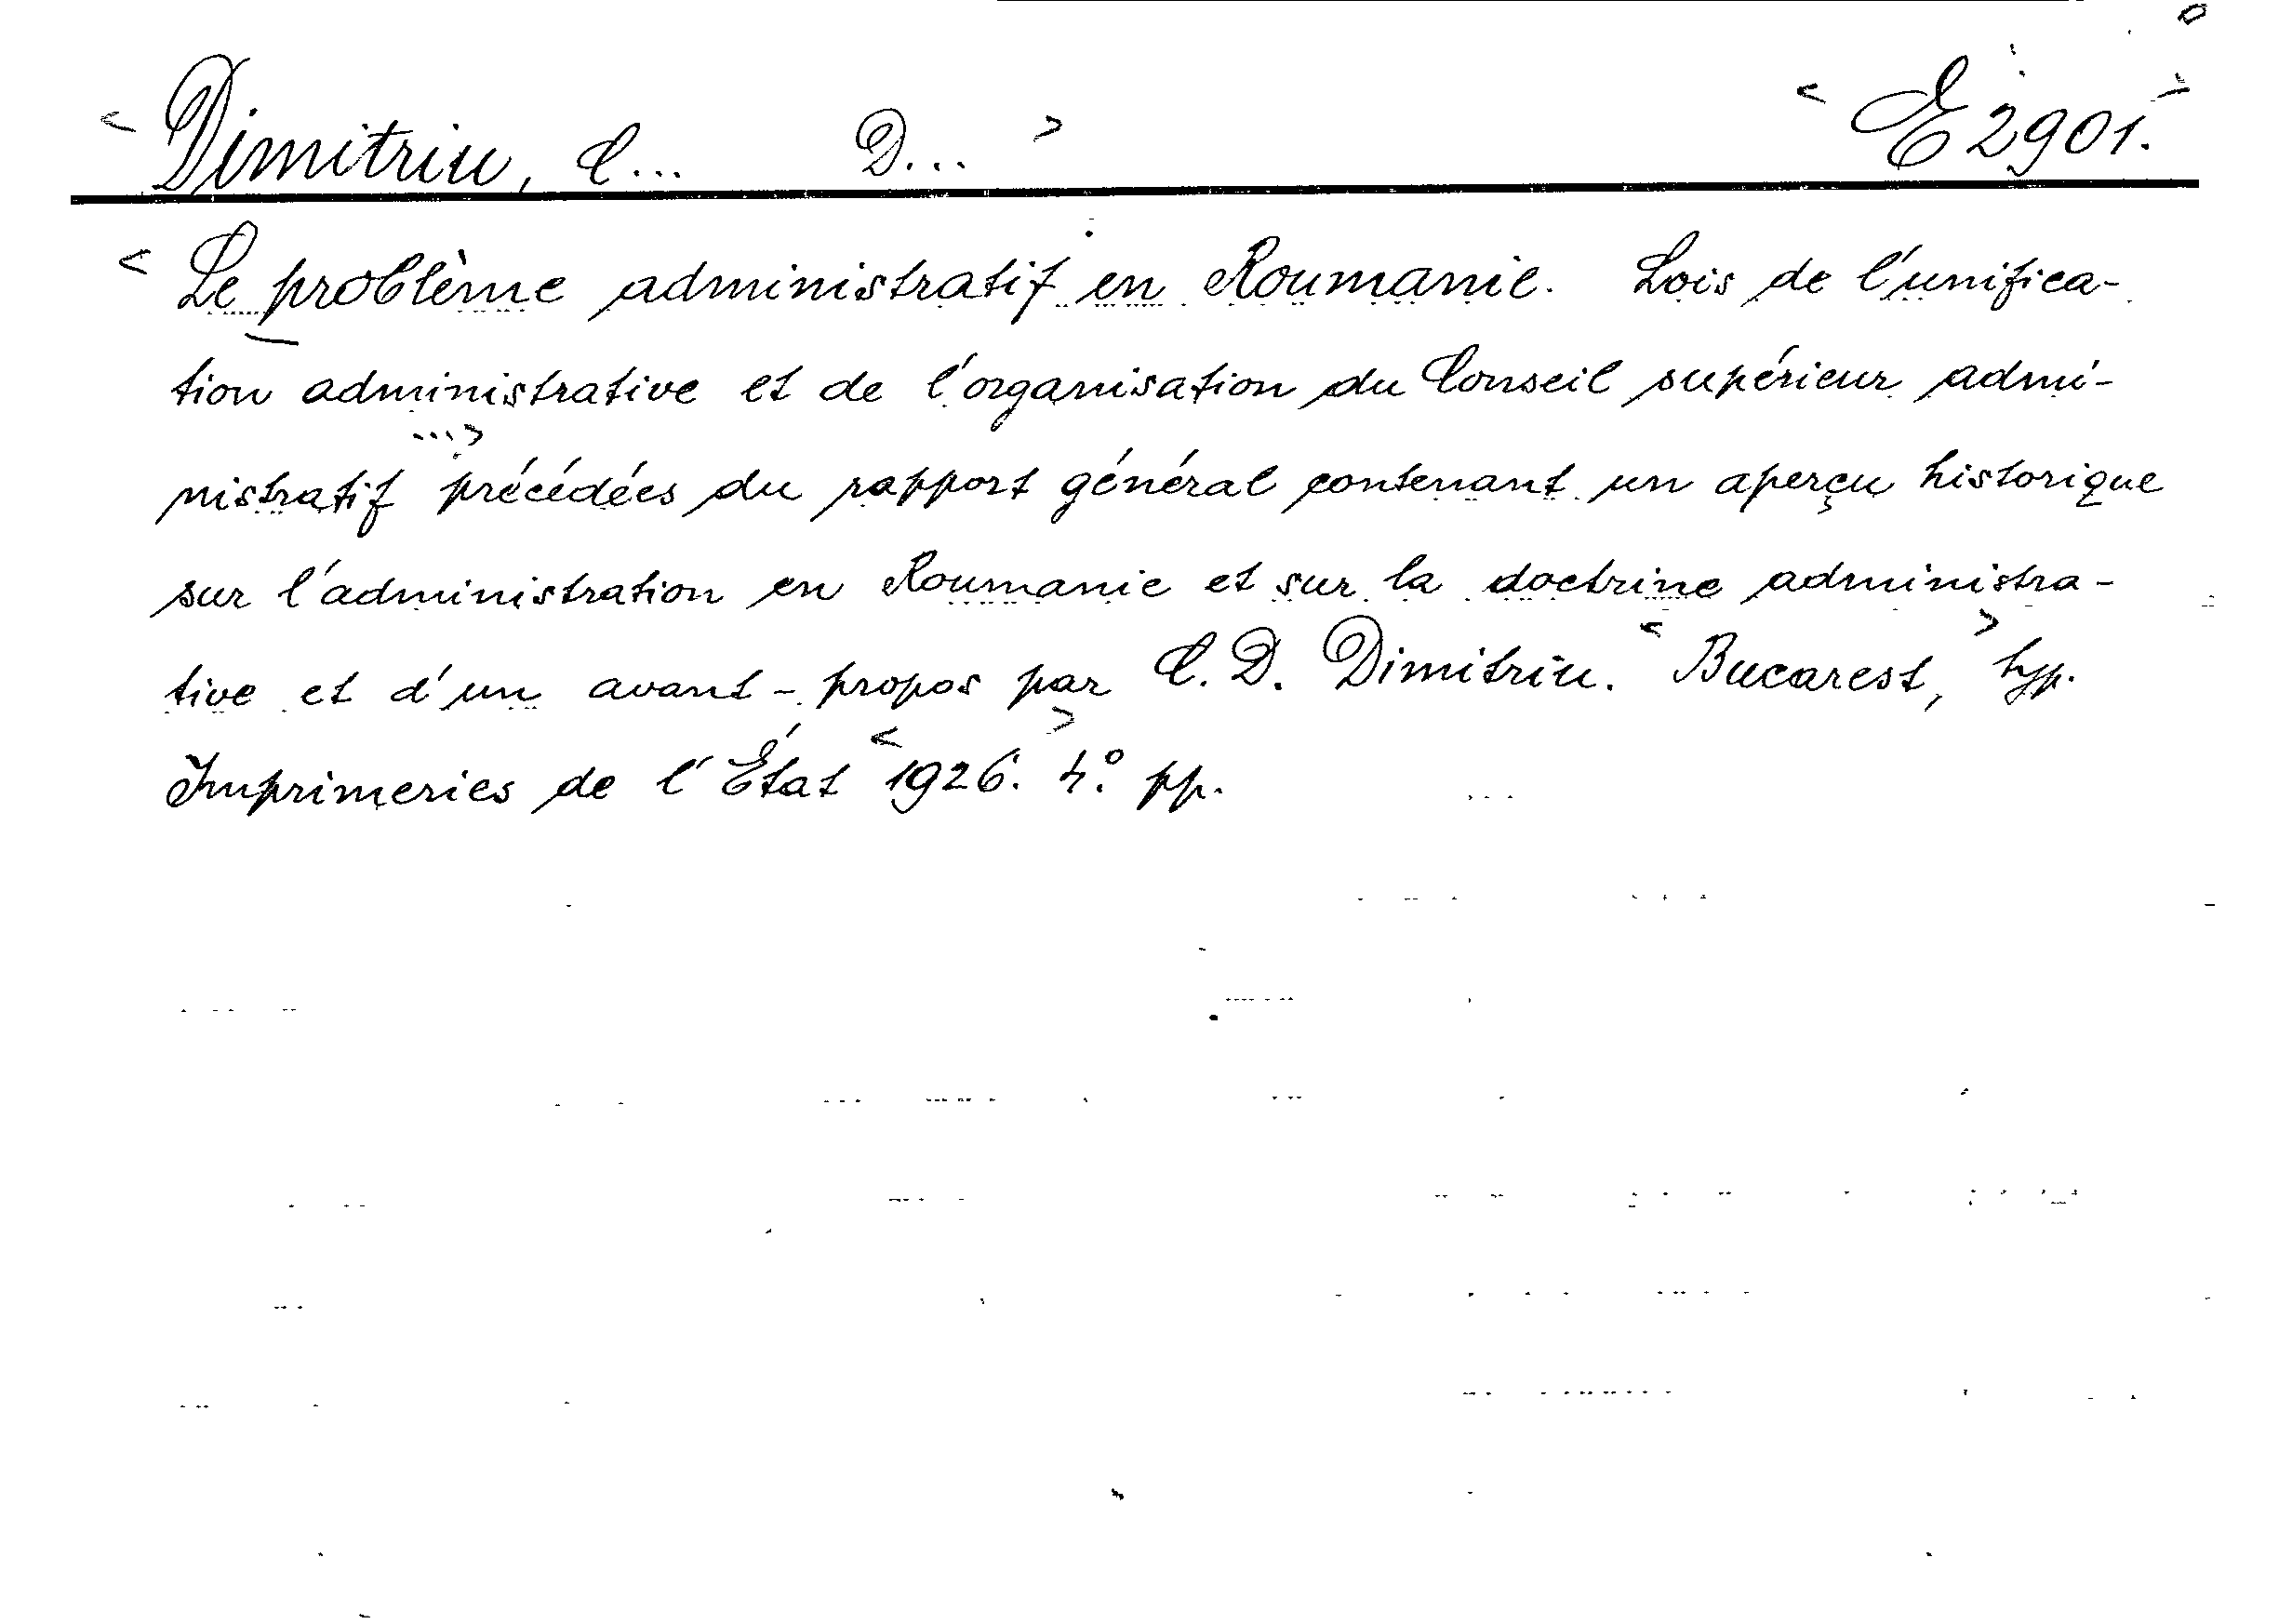 < Dimitriu, C... D... > < E 2901. >
< Le problème administratif en Roumanie. Lois de l'unifica-
tion administrative et de l'organisation du Conseil supérieur admi-
...>
nistratif précédées du rapport général contenant un aperçu historique
sur l'administration en Roumanie et sur la doctrine administra-
tive et d'un avant-propos par C. D. Dimitriu. < Bucarest, > typ.
Imprimeries de l'État < 1926. > 4.° pp.